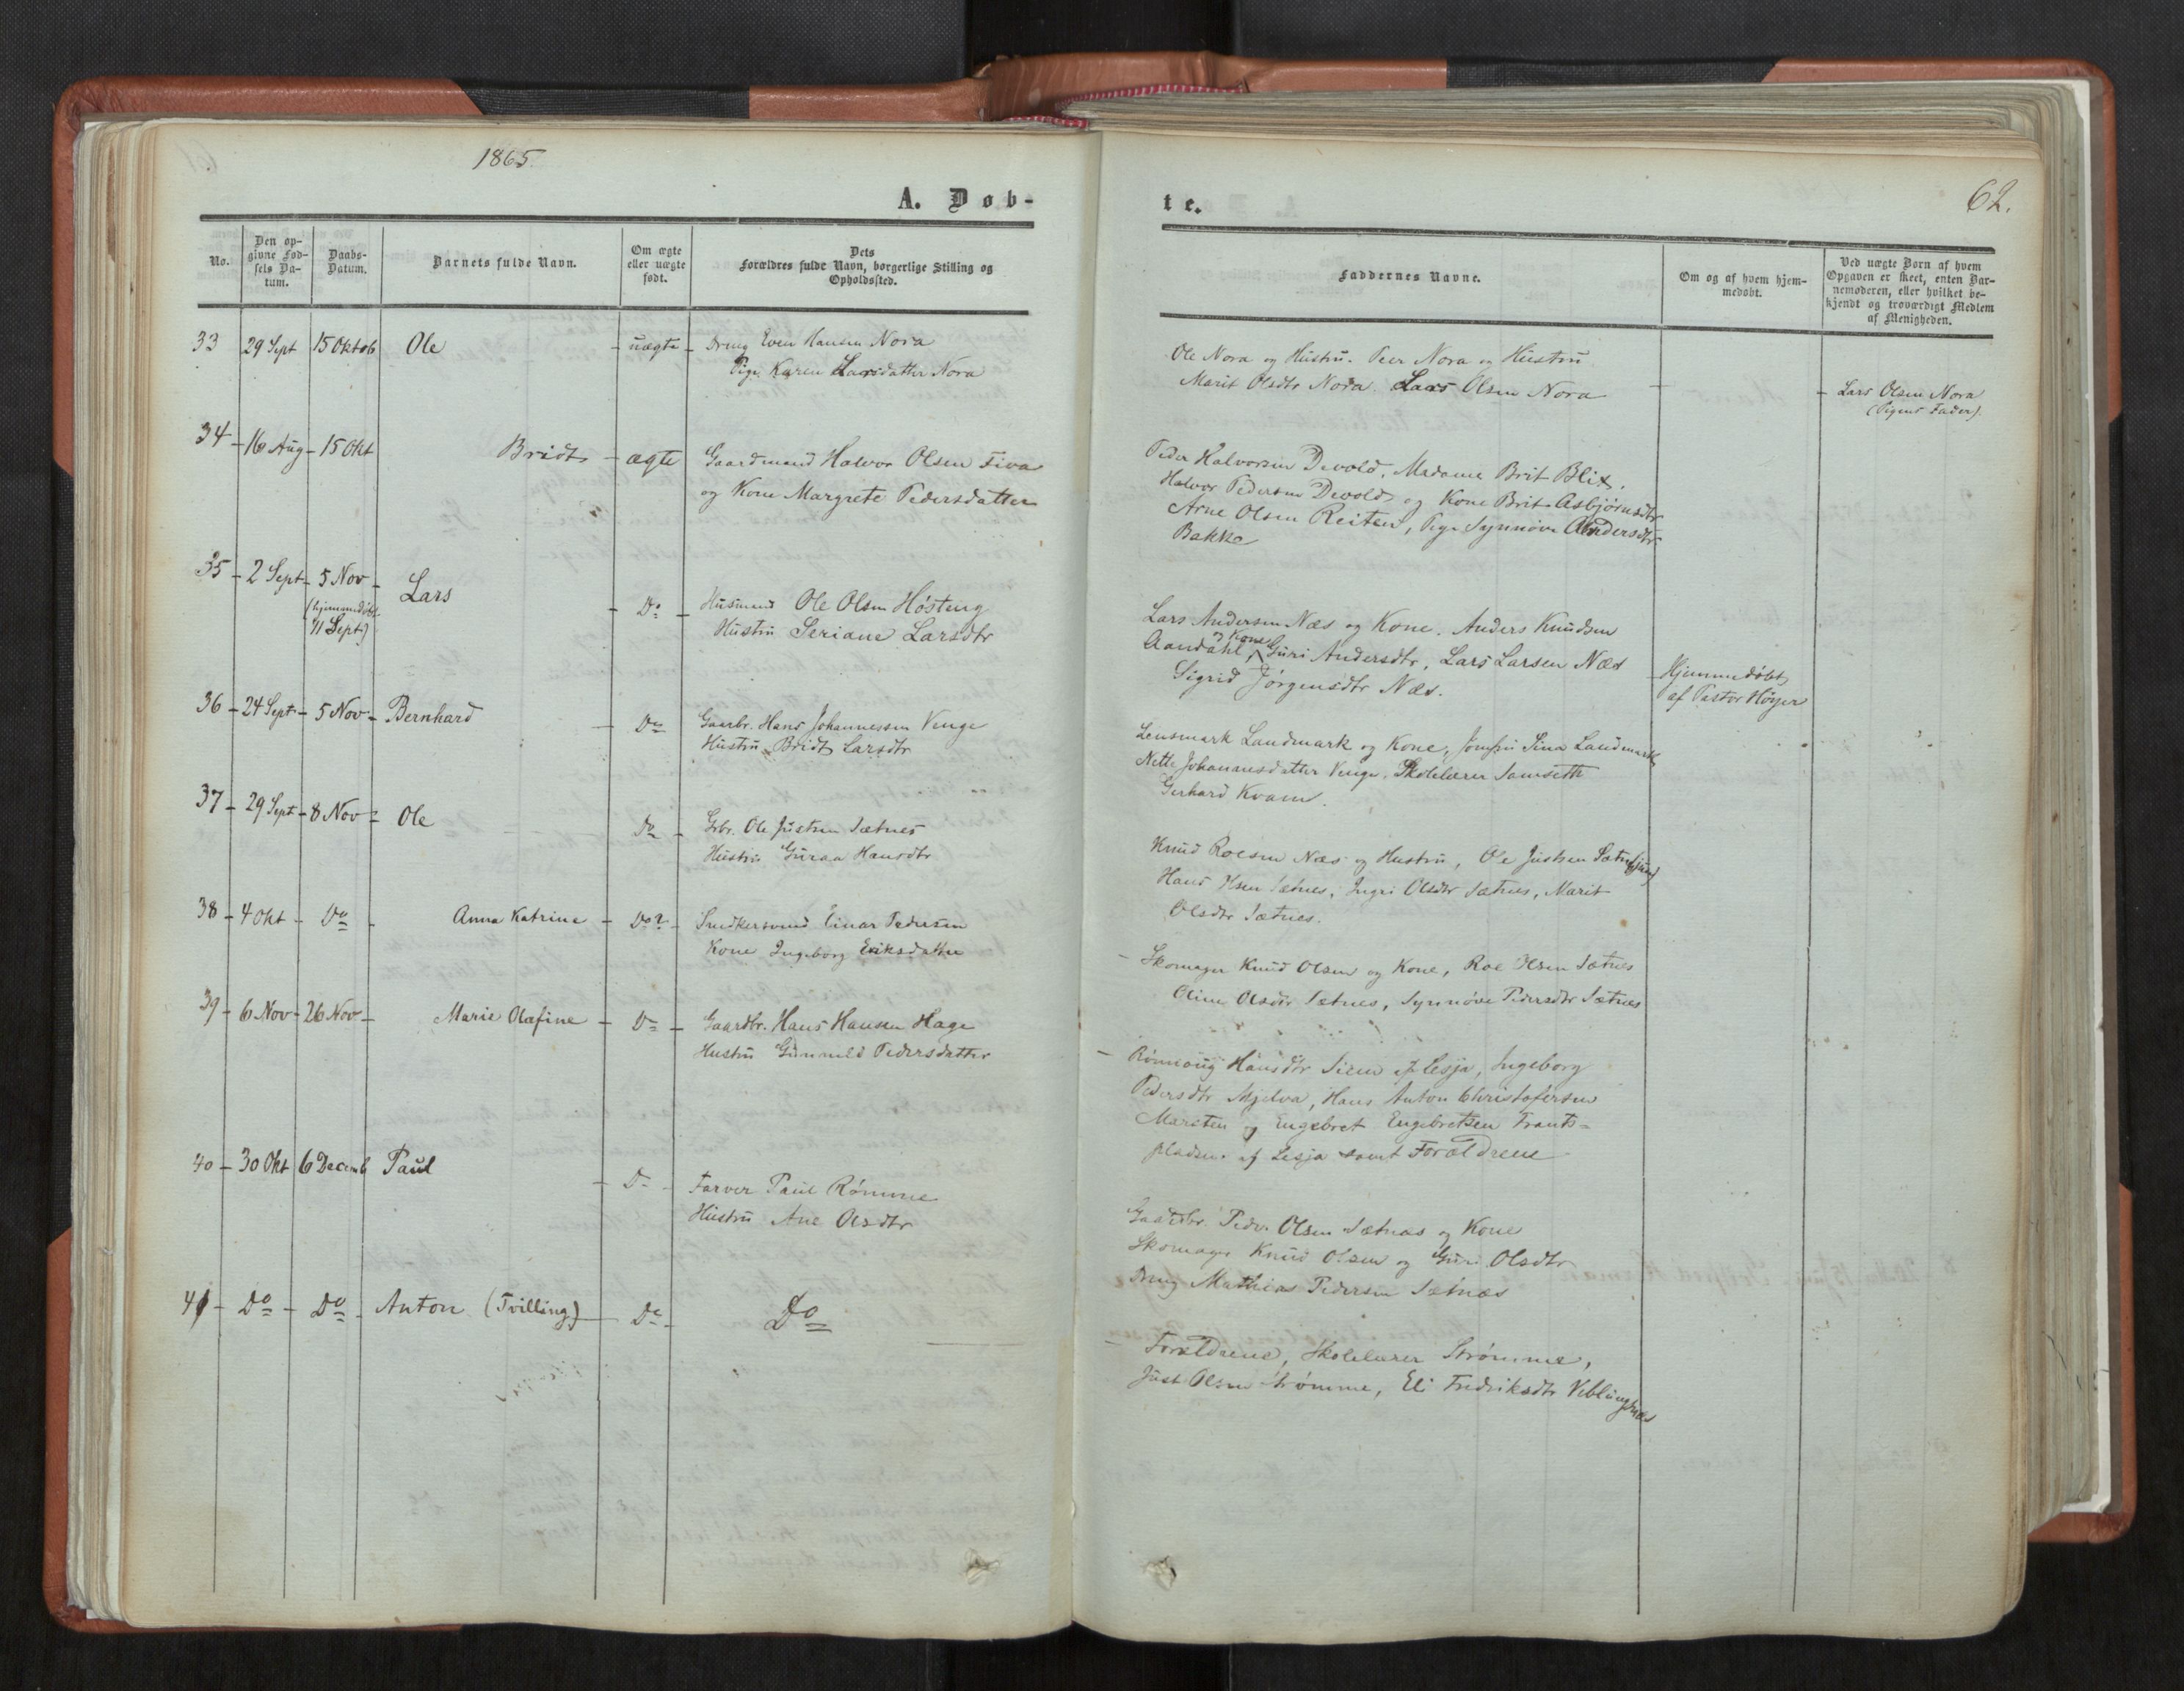 1865
A. Døb-
No.
Den op-
givne Fød-
sels Da-
tum.
Daabs-
Datum.
Barnets fulde Navn.
Om ægte
eller uægte
født.
Dets
Forældres fulde Navn, borgerlige Stilling og
Opholdssted.
33 29 Sept 15 Oktob Ole uægte Dreng Even Hansen Nora
Pige Karen Larsdatter Nora
34 - 16 Aug - 15 Okt Bridt - ægte Gaardmand Halvor Olsen Fiva
og Kone Margrete Pedersdatter
35 - 2 Sept - 5 Nov - Lars
(hjemmedøbt
11 Sept)
Do - Husmand Ole Olsen Høsteng
Hustru Seriane Larsdtr
36 - 24 Sept - 5 Nov - Bernhard - Do Gaarbr. Hans Johannessen Venge
Hustru Bridt Larsdtr
37 - 29 Sept - 8 Nov - Ole Do - Gbr. Ole Justsen Sætnes
Hustru Guraa Hansdtr
38 - 4 Okt - Do - Anna Katrine - Do? - Snedkersvend Einar Pedersen
Kone Ingeborg Eriksdatter
39 - 6 Nov - 26 Nov - Marie Olafine - Do - Gaardbr. Hans Hansen Hage
Hustru Gunnild Pedersdatter
40 - 30 Okt 6 Decemb Paul - Do - Farver Paul Rømme
Hustru Ane Olsdtr
41 - Do - Do - Anton (Tvilling) - Do - Do
te.
62.
Faddernes Navne.
Om og af hvem hjem-
medøbt.
Ved uægte Børn af hvem
Opgaven er skeet, enten Bar-
nemoderen, eller hvilket be-
kjendt og troværdigt Medlem
af Menigheden.
Ole Nora og Hustru. Peer Nora og Hustru
Marit Olsdtr Nora. Lars Olsen Nora - - Lars Olsen Nora
(Pigens Fader)
Peder Halvorsen Devold, Madame Brit Blix.
Halvor Pedersen Devold og Kone Brit Asbjørnsdtr
Arne Olsen Reiten, Pige Synnøve Andersdtr
Bakke
Lars Andersen Næs og Kone. Anders Knudsen
Aandahl, og Kone Guri Andersdtr, Lars Larsen Næs
Sigrid Jørgensdtr Næs.
Hjemmedøbt
af Pastor Høyer
Lensmark Landmark og Kone, Jomfru Sina Landmark
Nette Johannesdatter Venge. Skolelærer Samseth
Gerhard Kvam.
Knud Roesen Næs og Hustru, Ole Justsen Sætnes (jun)
Hans Olsen Sætnes, Ingri Olsdtr Sætnes, Marit
Olsdtr Sætnes.
- Skomager Knud Olsen og Kone, Roe Olsen Sætnes
Oline Olsdtr Sætnes, Synnøve Pedersdtr Sætnes
- Rønnoug Hansdtr af Lesja, Ingeborg
Pedersdtr Mjelva, Hans Anton Christofersen
Marsten og Engebret Engebretsen Frants-
pladsen af Lesja samt Forældrene
Gaardbr. Peder Olsen Sætnes og Kone
Skomager Knud Olsen og Guri Olsdtr
Dreng Mathias Pedersen Sætnes
- Forældrene, Skolelærer Strømme,
Just Olsen Strømme, Eli Fredriksdtr Veblungsnæs